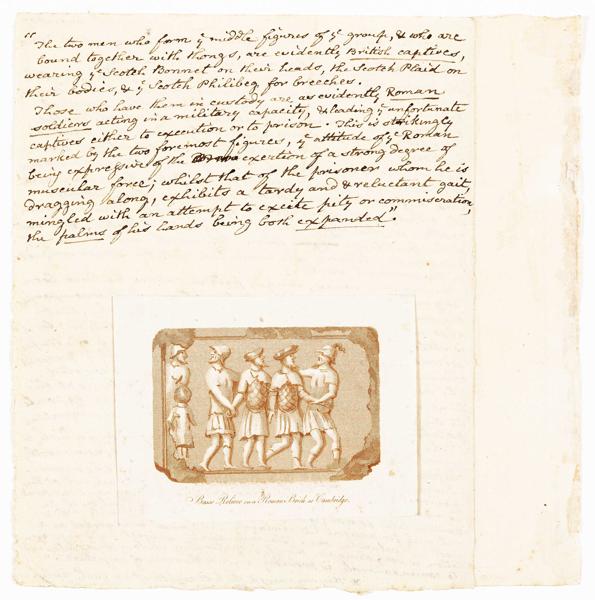 "The two men who form yᵉ middle figures of yᵉ group, & who are
bound together with thongs, are evidently British captives,
wearing yᵉ Scotch Bonnet on their heads, the Scotch Plaid on
their bodies, & yᵉ Scotch Philibeg for breeches.
Those who have them in custody are as evidently Roman
soldiers acting in a military capacity, & leading yᵉ unfortunate
captives either to execution or to prison. This is strikingly
marked by the two foremost figures, yᵉ attitude of yᵉ Roman
being expressive of the exertion of a strong degree of
muscular force; whilst that of the prisoner whom he is
dragging along, exhibits a tardy and & reluctant gait,
mingled with an attempt to excite pity or commiseration,
the palms of his hands being both expanded".
Basso Relievo on a Roman Brick at Cambridge.